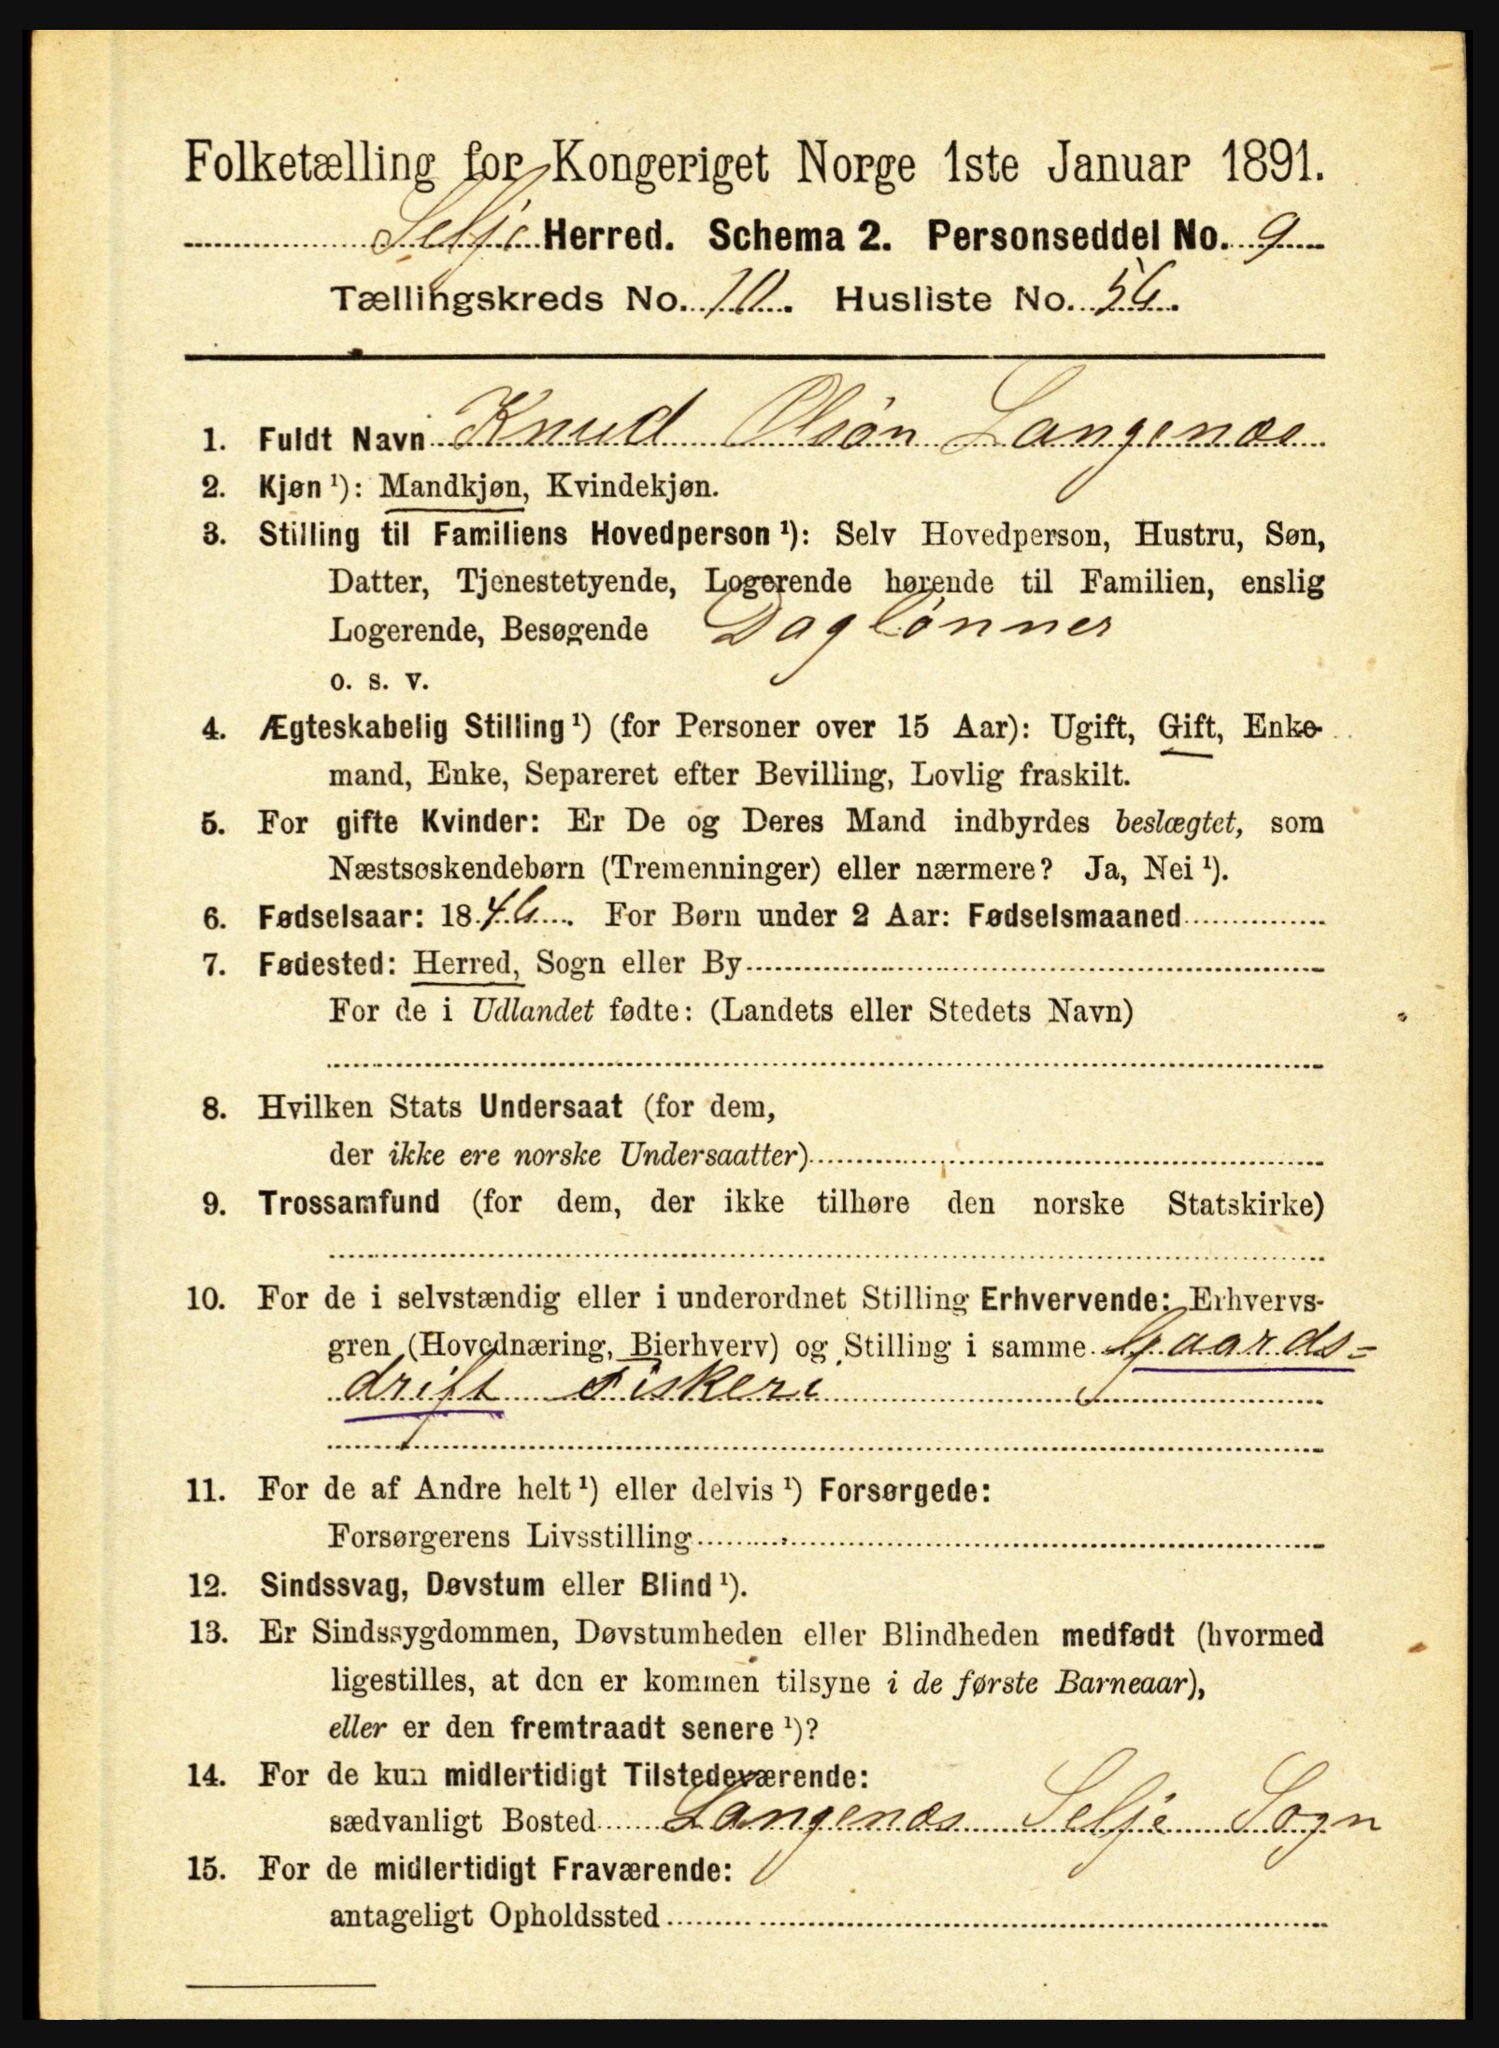 Folketælling for Kongeriget Norge 1ste Januar 1891.
Selje Herred. Schema 2. Personseddel No. 9
Tællingskreds No. 10. Husliste No. 56.
1. Fuldt Navn Knud Olsøn Langenæs
2. Kjøn ¹): Mandkjøn, Kvindekjøn.
3. Stilling til Familiens Hovedperson ¹): Selv Hovedperson, Hustru, Søn,
Datter, Tjenestetyende, Logerende hørende til Familien, enslig
Logerende, Besøgende Daglønner
o. s. v.
4. Ægteskabelig Stilling ¹) (for Personer over 15 Aar): Ugift, Gift, Enke-
mand, Enke, Separeret efter Bevilling, Lovlig fraskilt.
5. For gifte Kvinder: Er De og Deres Mand indbyrdes beslægtet, som
Næstsøskendebørn (Tremenninger) eller nærmere? Ja, Nei ¹).
6. Fødselsaar: 1846. For Børn under 2 Aar: Fødselsmaaned
7. Fødested: Herred, Sogn eller By
For de i Udlandet fødte: (Landets eller Stedets Navn)
8. Hvilken Stats Undersaat (for dem,
der ikke ere norske Undersaatter)
9. Trossamfund (for dem, der ikke tilhøre den norske Statskirke)
10. For de i selvstændig eller i underordnet Stilling Erhvervende: Erhvervs-
gren (Hovednæring, Bierhverv) og Stilling i samme Gaards-
drift Fiskeri
11. For de af Andre helt ¹) eller delvis ¹) Forsørgede:
Forsørgerens Livsstilling
12. Sindssvag, Døvstum eller Blind ¹).
13. Er Sindssygdommen, Døvstumheden eller Blindheden medfødt (hvormed
ligestilles, at den er kommen tilsyne i de første Barneaar),
eller er den fremtraadt senere ¹)?
14. For de kun midlertidigt Tilstedeværende:
sædvanligt Bosted Langenæs Selje Sogn
15. For de midlertidigt Fraværende:
antageligt Opholdssted